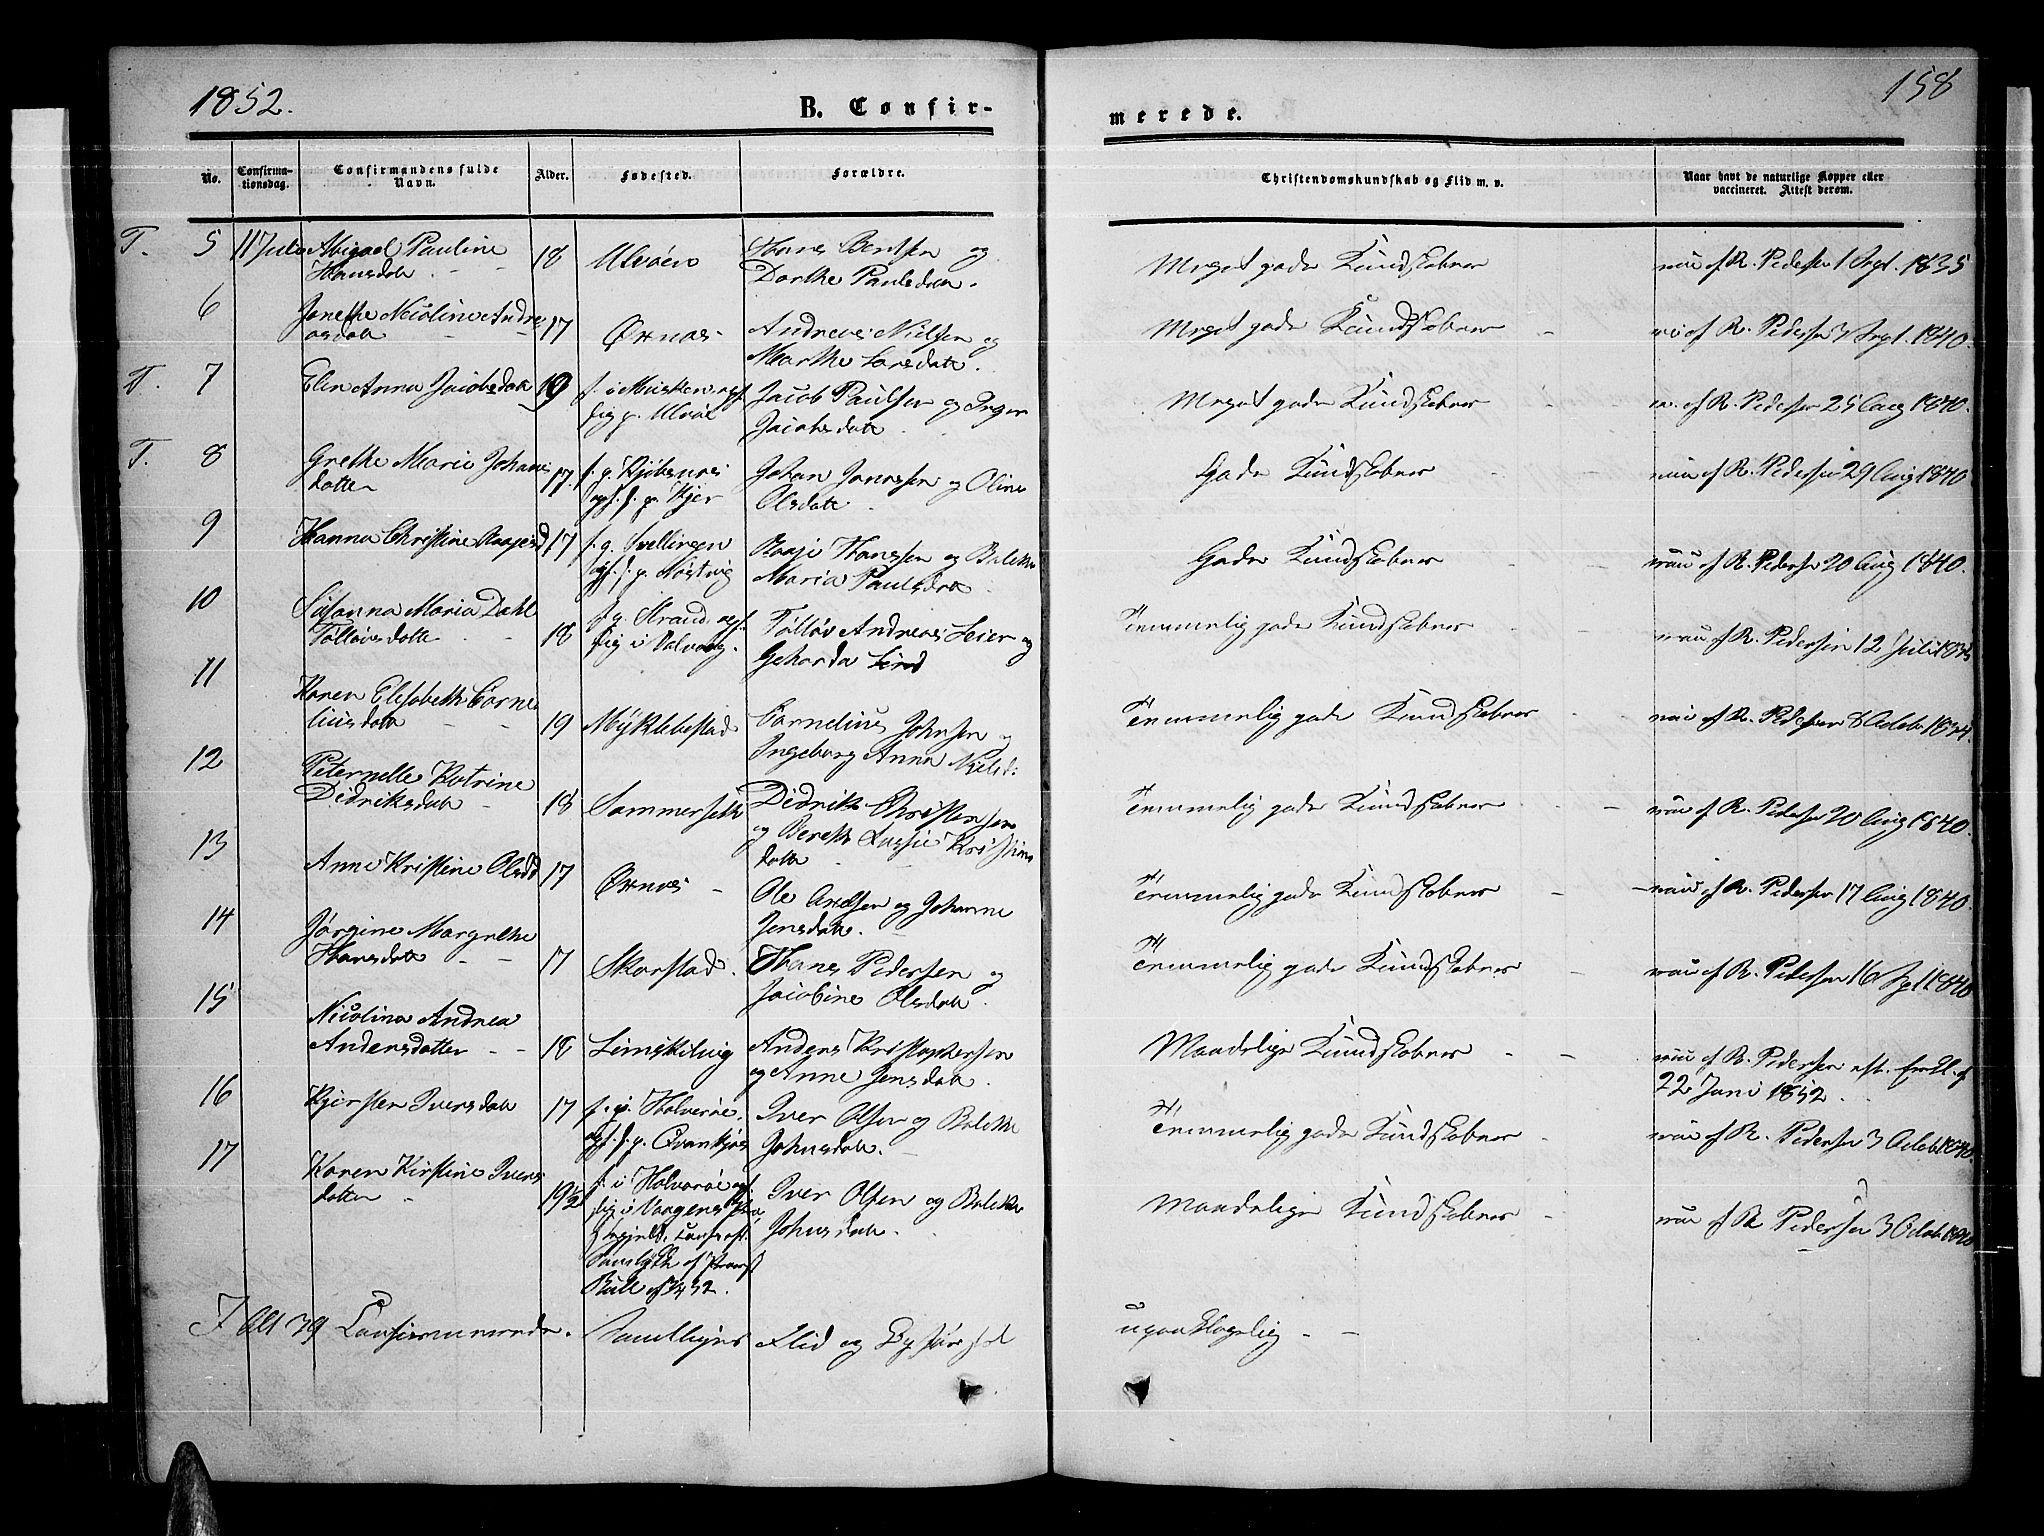 1852.
B. Confir-
merede.
158
No.
Confirma-
tionsdag.
Confirmandens fulde
Navn.
Alder.
Fødested.
Forældre.
Christendomskundskab og Flid m. v.
Naar havt de naturlige Kopper eller
vaccineret. Attest derom.
T. 5 11 Julio Abigael Pauline
Hansdatt. 18 Ulvøen
Hans Bentsen og
Dorthe Paulsdatt.
Meget gode Kundskaber
vac af R. Pedersen 1 Sept. 1835
6 Janethe Nicoline Andre
asdatt 17 Ørnes
Andreas Nielsen og
Marthe Larsdatt.
Meget gode Kundskaber
vac af R. Pedersen 3 Sept. 1840.
T. 7 Elen Anna Jacobsdatt 19
f. i Musken opf.
sig p. Ulvøe
Jacob Paulsen og Inger
Jacobsdatt.
Meget gode Kundskaber
v. af R. Pedersen 25 Aug 1840.
T. 8 Grethe Marie Johans
datter 17
f. g. Kjøbsnes
opf. s. p. Kjer
Johan Jonassen og Oline
Olsdatt.
Gode Kundskaber
vac af R. Pedersen 29 Aug 1840
9 Hanna Christine Aagesd 17
f. g.
opf. s. p.
Aage Hanssen og
Maria Paulsdatt.
Gode Kundskaber
vac af R. Pedersen 20 Aug 1840.
10 Susanna Maria Dahl
Tolløvsdatt 18
f. g. Strand opf.
sig i
Tølløv Andreas Leier og
Geharda Lind
Temmelig gode Kundskaber
vac af R. Pedersen 12 Juli
11 Karen Elisabeth Corne
liusdatt 19 Myklebostad
Cornelius Johnsen og
Ingeborg Anna Nielsd:
Temmelig gode Kundskaber
vac af R. Pedersen 8 Octob 1834.
12 Peternelle Katrine
Didriksdatt 18 Sommersett
Didrik Christensen
og Bereth Lussie Kristins
datt
Temmelig gode Kundskaber
vac af R. Pedersen 20 Aug 1840.
13 Anne Kristine Olsd 17 Ørnes
Ole Andsen og Johanne
Jensdatt.
Temmelig gode Kundskaber
vac af R. Pedersen 17 Aug 1840.
14 Jørgine Margrethe
Hansdatt 17 Skarstad.
Hans Pedersen og
Jacobine Olsdatt.
Temmelig gode Kundskaber
vac af R. Pedersen 16 Sept 1840
15 Nicolina Andrea
Andersdatter 18
Anders Kristophersen
og Anne Jensdatt.
Maadelige Kundskaber
vac af R. Pedersen
22 Juni 1852.
16 Kjersten Iversdatt 17
f. g. Holverøe.
opf. s. p.
Iver Olsen og Balethe
Johnsdatt.
Temmelig gode Kundskaber
vac af R. Pedersen 3 Octob 1840.
17 Karen Kirstine Ivers
datter 19½
f. i Holverøe opf.
sig i
af Provst
Iver Olsen og Balethe
Johnsdatt.
Maadelige Kundskaber
vac af R. Pedersen 3 Octob 1840
I Alt 39 Confirmerende.
Samtliges Flid og Opførsel
upaaklagelig